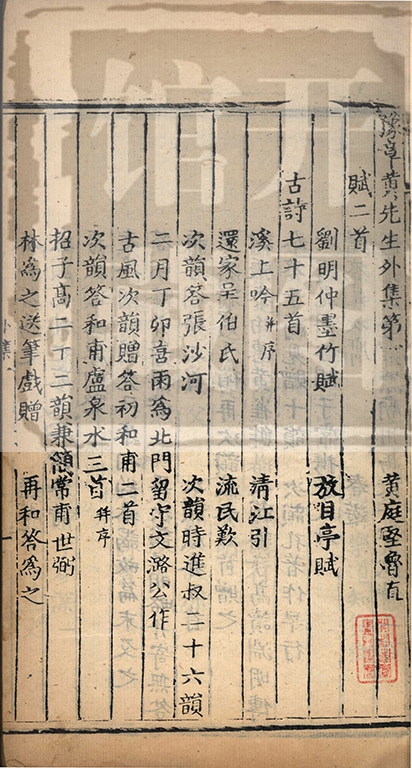 豫章黄先生外集第一
黄庭堅魯直
賦二首
劉明仲墨竹賦　放目亭賦
古詩七十五首
溪上吟并序　清江引
還家呈伯氏　流民歎
次韻答張沙河　次韻時進叔二十六韻
二月丁卯喜雨爲北門留守文潞公作
古風次韻贈答初和甫二首
次韻答和甫盧泉水三首并序
招子髙二十二韻兼簡常甫世弼
林爲之送筆戲贈　再和答爲之